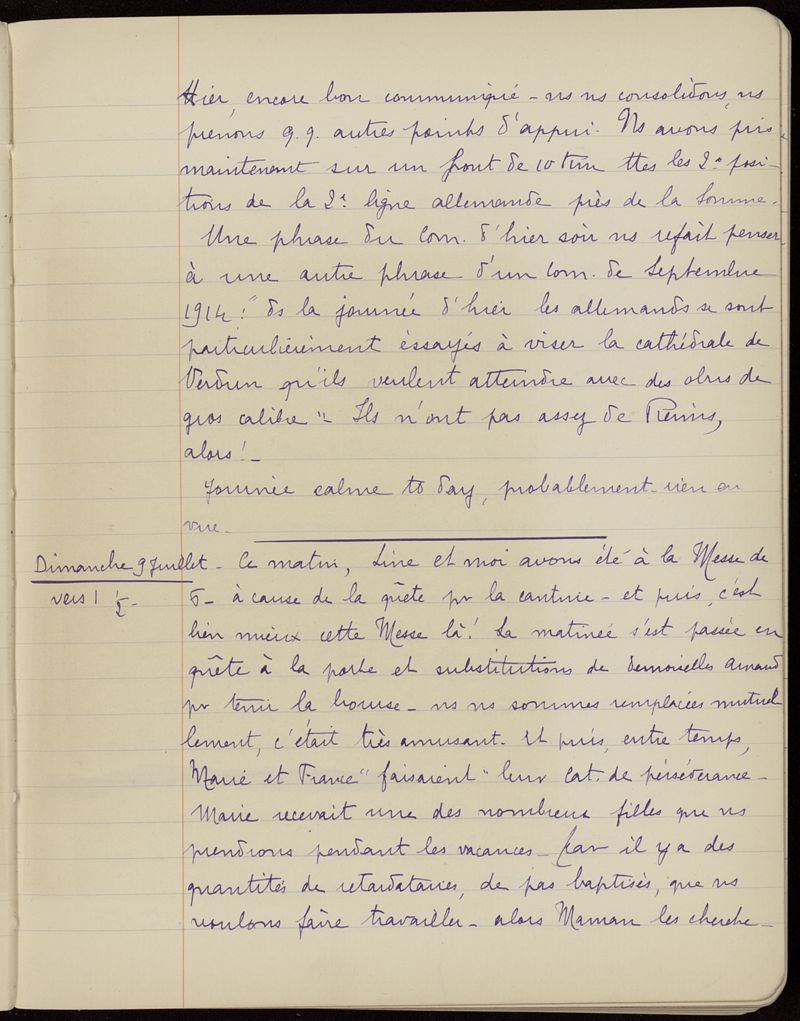 Hier, encore bon communiqué - ns ns consolidons, ns
prenons q.q. autres points d'appui. Ns avons pris
maintenant sur un front de 10 km ttes les 2e posi-
tions de la 2e ligne allemande près de la Somme.
Une phrase du Com. d'hier soir ns refait penser
à une autre phrase d'un Com. de Septembre
1914 : "ds la journée d'hier les allemands se sont
particulièrement éssayés à viser la cathédrale de
Verdun qu'ils veulent atteindre avec des obus de
gros calibre" - Ils n'ont pas assez de Reims,
alors! -
Journée calme to day, probablement rien en
vue -
Dimanche 9 Juillet - Ce matin, Line et moi avons été à la Messe de
vers 1 1/2 - 6 - à cause de la quête pr la cantine - et puis, c'est
bien mieux cette Messe là! La matinée s'est passée en
quête à la porte et substitutions de demoiselles
pr tenir la bourse - ns ns sommes remplacées mutuel
lement, c'était très amusant. Et puis, entre temps,
Marie et France "faisaient" leur Cat. de persévérance -
Marie recevait une des nombreux filles que ns
prendrons pendant les vacances - Car il y a des
quantités de retardataires, de pas baptisés, que ns
voulons faire travailler - alors Maman les cherche -